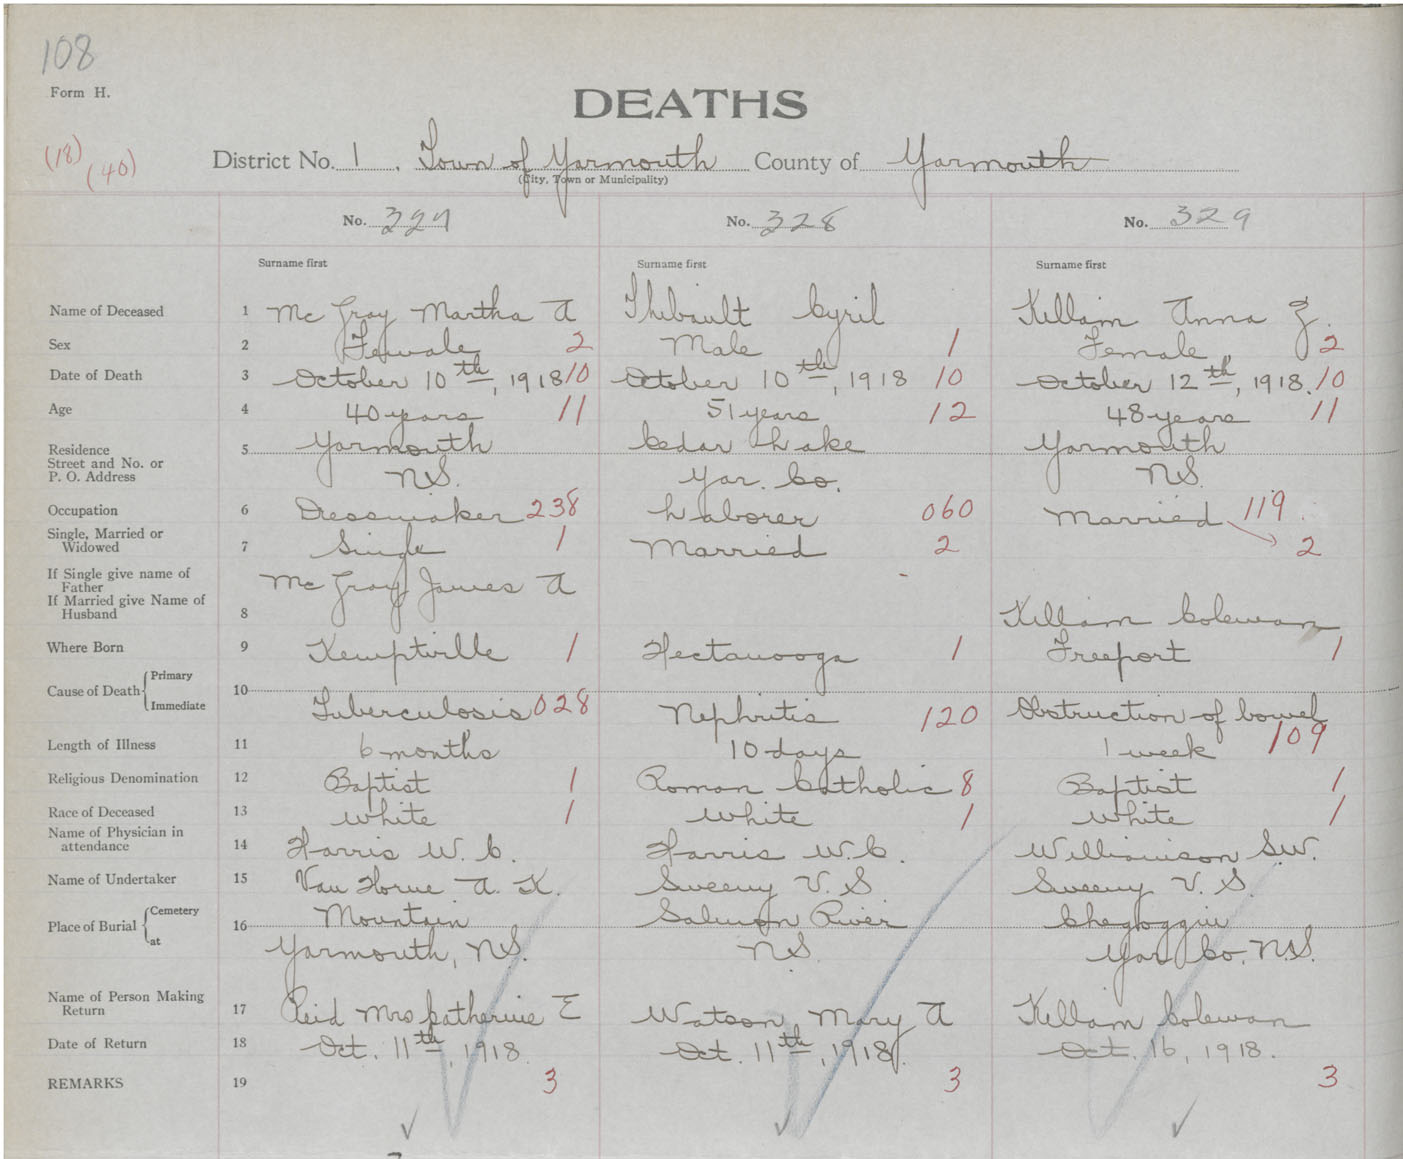 108
Form H.
DEATHS
(18) (40)
District No. 1. Town of Yarmouth County of Yarmouth
(City, Town or Municipality)
No. 327 No. 328 No. 329
Surname first Surname first Surname first
Name of Deceased 1 McGray Martha A Thibault Cyril Killam Anna Z.
Sex 2 Female 2 Male 1 Female 2
Date of Death 3 October 10th, 1918 10 October 10th, 1918 10 October 12th, 1918. 10
Age 4 40 years 11 51 years 12 48 years 11
Residence 5 Yarmouth Cedar Lake Yarmouth
Street and No. or
P. O. Address N.S. Yar. Co. N.S.
Occupation 6 Dressmaker 238 Laborer 060 Married 119
Single, Married or
Widowed 7 Single 1 Married 2 2
If Single give name of
Father McGray James A
If Married give Name of
Husband 8 Killam Coleman
Where Born 9 Kemptville 1 Hectanooga 1 Freeport 1
Cause of Death Primary 10
Immediate Tuberculosis 028 Nephritis 120 Obstruction of bowel 109
Length of Illness 11 6 months 10 days 1 week
Religious Denomination 12 Baptist 1 Roman Catholic 8 Baptist 1
Race of Deceased 13 White 1 White 1 White 1
Name of Physician in
attendance 14 Harris W. C. Harris W. C. Williamson S.W.
Name of Undertaker 15 Van Horne A. K. Sweeny V. S Sweeny V. S.
Place of Burial Cemetery 16 Mountain Salmon River Cheggoggin
at Yarmouth, N.S. N.S. Yar. Co. N.S.
Name of Person Making
Return 17 Reid Mrs Catherine E Watson Mary A Killam Coleman
Date of Return 18 Oct. 11th, 1918. Oct. 11th, 1918. Oct. 16, 1918.
REMARKS 19 3 3 3